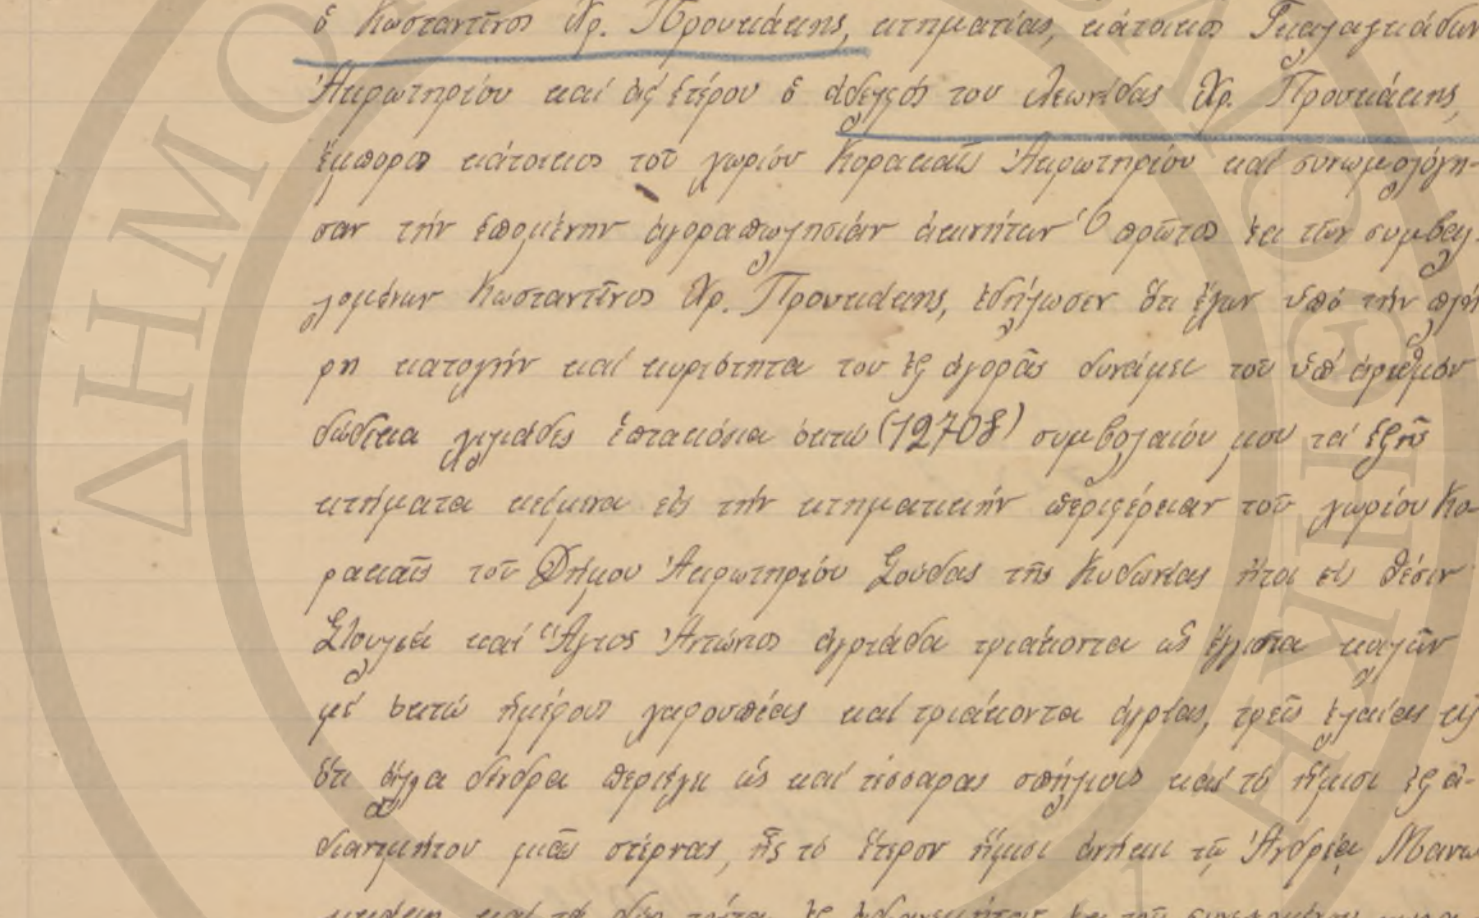 ὁ Κωσταντῖνος Χρ. Προυκάκης, κτηματίας, κάτοικος
Ἀκρωτηρίου καί ἀφ' ἑτέρου ὁ ἀδελφός του Λεωνίδας Χρ. Προυκάκης,
ἔμπορος κάτοικος τοῦ χωρίου Κορακιαῖς Ἀκρωτηρίου καί συνωμολόγη-
σαν τήν ἑπομένην ἀγοραπωλησίαν ἀκινήτων Ὁ πρῶτος ἐκ τῶν συμβαλ-
λομένων Κωσταντῖνος Χρ. Προυκάκης, ἐδήλωσεν ὅτι ἔχων ὑπό τήν πλή
ρη κατοχήν καί κυριότητα του ἐξ ἀγορᾶς δυνάμει τοῦ ὑπ' ἀριθμόν
δώδεκα χιλιάδες ἑπτακόσια ὀκτώ (12708) συμβολαίου μου τά ἑξῆς
κτήματα κείμενα εἰς τήν κτηματικήν περιφέρειαν τοῦ χωρίου Κο-
ρακαῖς τοῦ Δήμου Ἀκρωτηρίου Σούδας τῆς Κυδωνίας ἤτοι εἰς θέσιν
καί Ἅγιος Ἀντώνιος ἀγριάδα τριάκοντα ὡς ἔγγιστα
μέ ὀκτώ ἡμέρους χαρουπέας καί τριάκοντα ἀγρίας, τρεῖς ἐλαίας
ὅτι ἄλλα δένδρα περιέχει ὡς καί τέσσαρας σπήλιους καί τό ἥμισυ ἐξ ἀ-
διανεμήτου μιᾶς στέρνας, ἧς τό ἕτερον ἥμισυ ἀνήκει τῷ Ἀνδρέᾳ
καί τά δύο τρίτα ἐξ ἀδιανεμήτου
ΔΗΜΟ